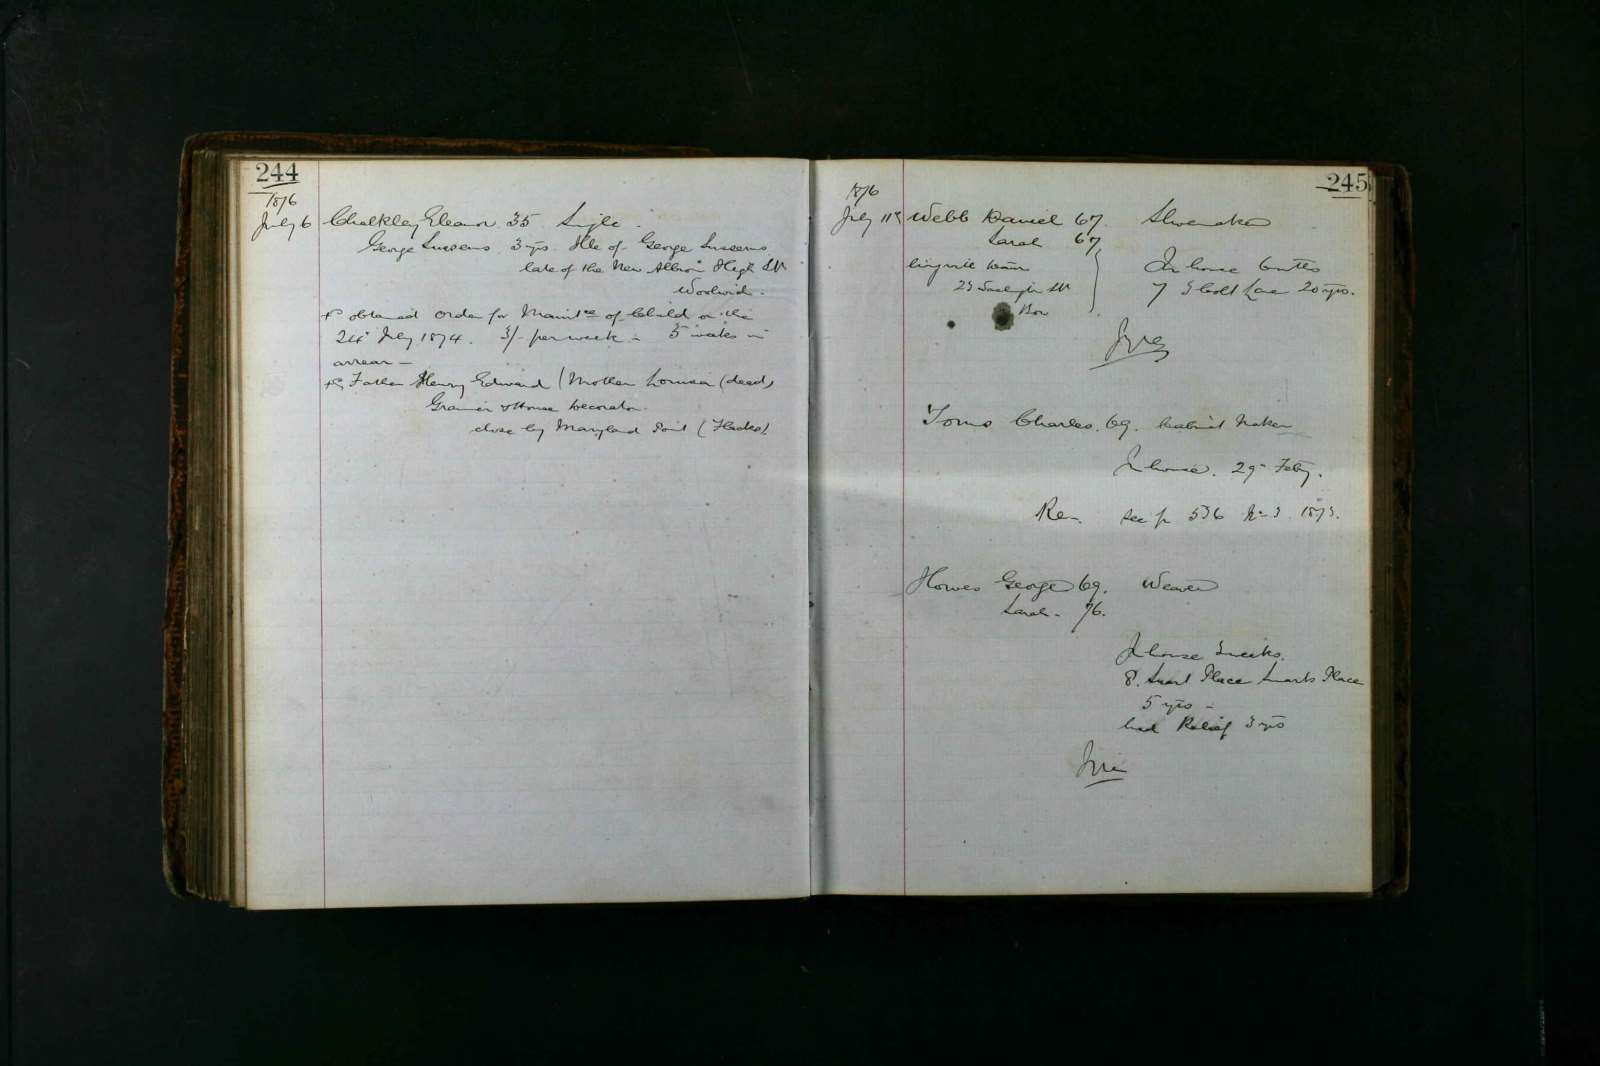 244
1876
July 6 Chalkley Eleanor 35 Single
George Sussens 3 yrs. Ille of George Sussens
late of the New Albion High St
Woolwich.
obtained order for Maintce of Child on the
24 July 1874. 3/- per week - 5 weeks in
arrear -
Father Henry Edward / Mother Louisa (dead)
Grainer & House Decorator
close by Maryland Point (Flecks).
245
1876
July 11 Webb Daniel 67. Shoemaker
Sarah 67
In house 6 mths
23 St
7 3 Colt Lane 20 yrs.
Bow
Toms Charles. 69. Cabinet Maker
In house. 29 Feby.
see p 536 No 3 1873.
Howes George 69. Weaver
Sarah - 76.
In house 3 weeks.
8. Smart Place Smarts Place
5 yrs -
had Relief 3 yrs